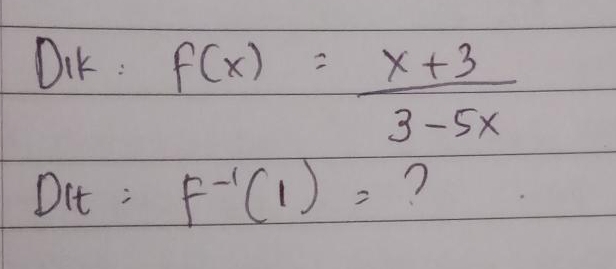 Dik : f(x) = x+3 / 3-5x
Dit : F⁻¹(1) = ?